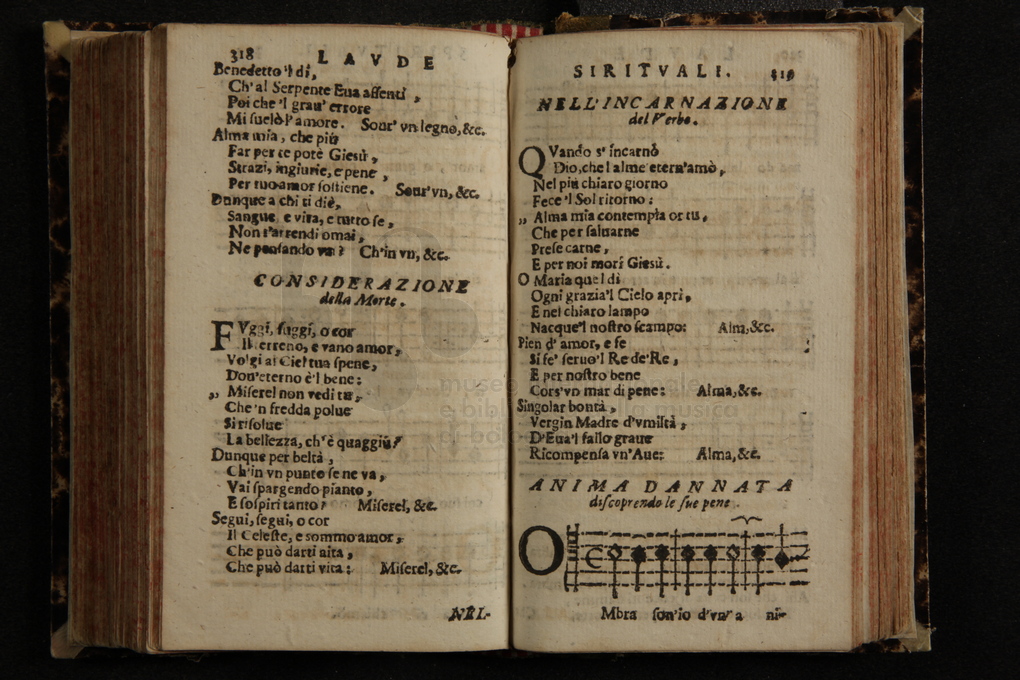 318 LAVDE
Benedetto 'l dì,
Ch'al Serpente Eua assentì,
Poi che 'l grau' errore
Mi suelò l'amore. Sour' vn legno, &c.
Alma mia, che più
Far per te potè Giesù,
Strazi, ingiurie, e pene,
Per tuo amor sostiene. Sour' vn, &c.
Dunque a chi ti diè,
Sangue, e vita, e tutto se,
Non t'arrendi omai,
Ne pensando vai? Ch'in vn, &c.
CONSIDERAZIONE
della Morte.
FVggi, fuggi, o cor
Il terreno, e vano amor,
Volgi al Ciel tua spene,
Don' eterno è'l bene:
„ Misere! non vedi tu,
Che 'n fredda polue
Si risolue
La bellezza, ch'è quaggiù?
Dunque per beltà,
Ch'in vn punto se ne va,
Vai spargendo pianto,
E sospiri tanto? Misere!, &c.
Segui, segui, o cor
Il Celeste, e sommo amor,
Che può darti aita,
Che può darti vita: Misere!, &c.
NEL-
SIRITVALI. 319
NELL'INCARNAZIONE
del Verbo.
QVando s' incarnò
Dio, che l alme etern'amò,
Nel più chiaro giorno
Fece 'l Sol ritorno:
„ Alma mia contempla or tu,
Che per saluarne
Prese carne,
E per noi morì Giesù.
O Maria quel dì
Ogni grazia'l Cielo aprì,
E nel chiaro lampo
Nacque'l nostro scampo: Alm, &c.
Pien d' amor, e fe
Si fe' seruo'l Re de' Re,
E per nostro bene
Cors' vn mar di pene: Alma, &c.
Singolar bontà,
Vergin Madre d'vmiltà,
D'Eua'l fallo graue
Ricompensa vn'Aue: Alma, &c.
ANIMA DANNATA
discoprendo le sue pene.
OMbra son'io d'vn' a ni-
museo
e biblio della musica
di bolo